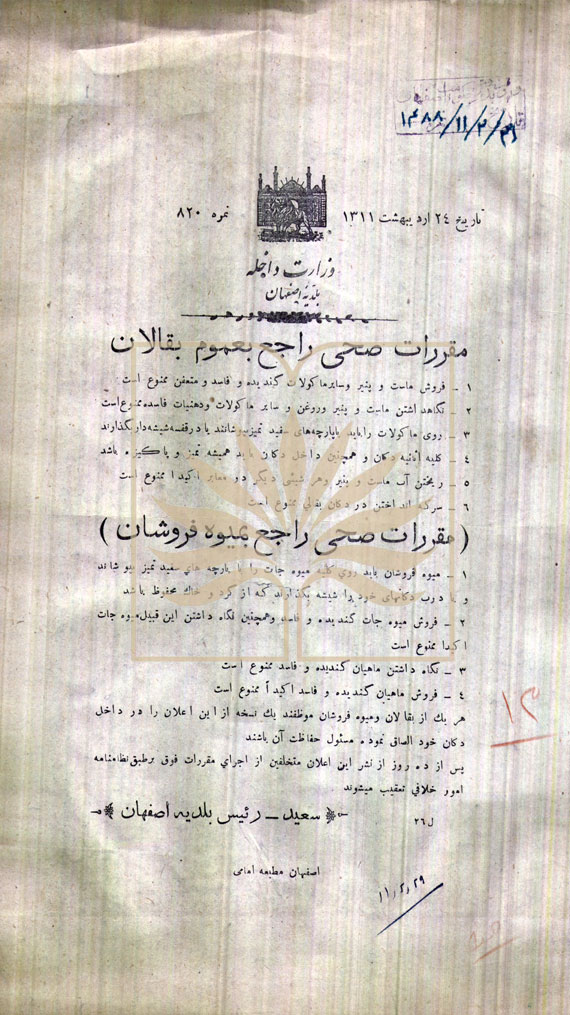 ۱۴۸۸/۱۱/۲/۳۱
تاریخ ۲٤ اردیبهشت ۱۳۱۱
نمره ۸۲۰
وزارت داخله
بلدیه اصفهان
مقررات صحی راجع بعموم بقالان
۱ ـ فروش ماست و پنیر وسایرماکولات گندیده و فاسد و متعفن ممنوع است
۲ ـ نگاهداشتن ماست و پنیر وروغن و سایر ماکولات ودهنیات فاسده ممنوع است
۳ ـ روی ماکولات راباید باپارچه‌های سفید تمیزبپوشانند یا درقفسه شیشه‌دار بگذارند
٤ ـ کلیه اثاثیه دکان و همچنین داخل دکان باید همیشه تمیز و پاکیزه باشد
٥ ـ ریختن آب ماست و پنیر وهر شیئی دیگر در معابر اکیداً ممنوع است
٦ ـ سرکه انداختن در دکان بقالی ممنوع است
( مقررات صحی راجع بمیوه فروشان )
۱ ـ میوه فروشان باید روی کلیه میوه جات را با پارچه های سفید تمیز بپوشانند
و یا درب دکانهای خود را شیشه بگذارند که از گرد و خاک محفوظ باشد
۲ ـ فروش میوه جات گندیده و فاسد وهمچنین نگاه داشتن این قبیل میوه جات
اکیدا ممنوع است
۳ ـ نگاه داشتن ماهیان گندیده و فاسد ممنوع است
٤ ـ فروش ماهیان گندیده و فاسد اکیداً ممنوع است
هر یك از بقالان ومیوه فروشان موظفند یك نسخه از این اعلان را در داخل
دکان خود الصاق نموده مسئول حفاظت آن باشند
پس از ده روز از نشر این اعلان متخلفین از اجرای مقررات فوق برطبق نظامنامه
امور خلافی تعقیب میشوند
سعید ـ رئیس بلدیه اصفهان
ل ۲٦
اصفهان مطبعه امامی
۱۱٫۲٫۲۹
۱۳